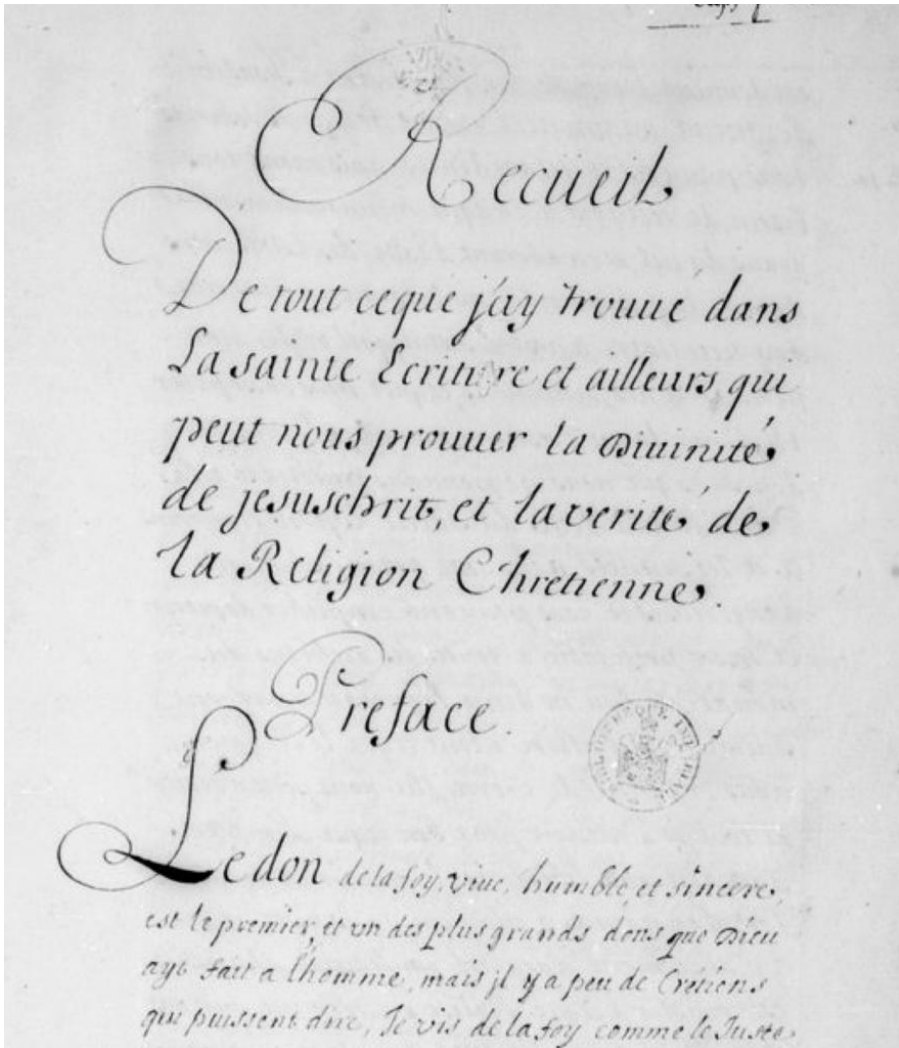 Recueil
De tout ceque j'ay trouue dans
La sainte Ecriture et ailleurs, qui
peut nous prouuer la Diuinité
de jesuschrit, et la verité de
la Religion Chretienne.
Preface.
Le don de la foy viue, humble, et sincere,
est le premier, et vn des plus grands dons que Dieu
ayt fait a l'homme, mais jl y a peu de Crétiens
qui puissent dire, Je vis de la foy comme le Juste